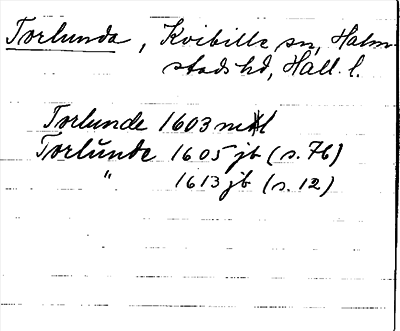 Torlunda, Kvibille sn, Halm-
stads hd, Hall. l.
Torlunde 1603 mtl
Torlŭnde 1605 jb (s. 76)
" 1613 jb (s. 12)